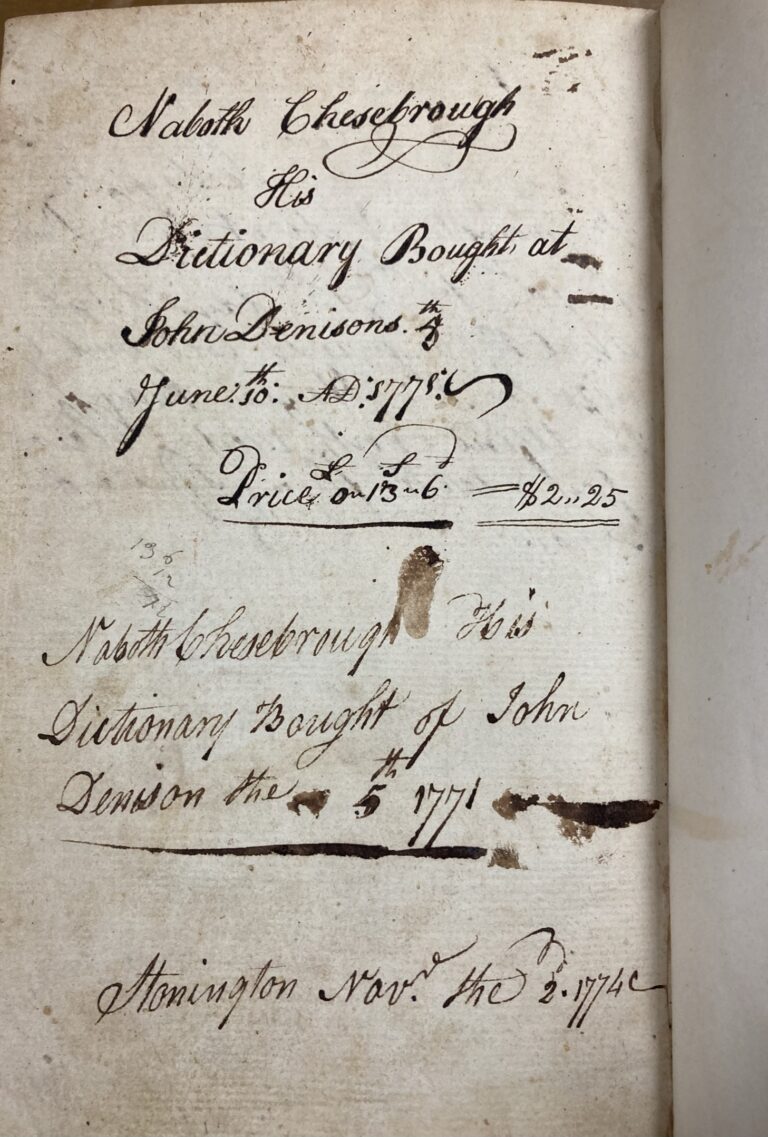 Naboth Chesebrough
His
Dictionary Bought, at
John Denisons. th
June. 10th: AD:
Price £ 0 „ 13 „ 6 = $2,,25
13 6
12
Naboth Chesebrough His
Dictionary Bought of John
Denison the 5th 1771
Stonington Nov.r the 2d. 1774